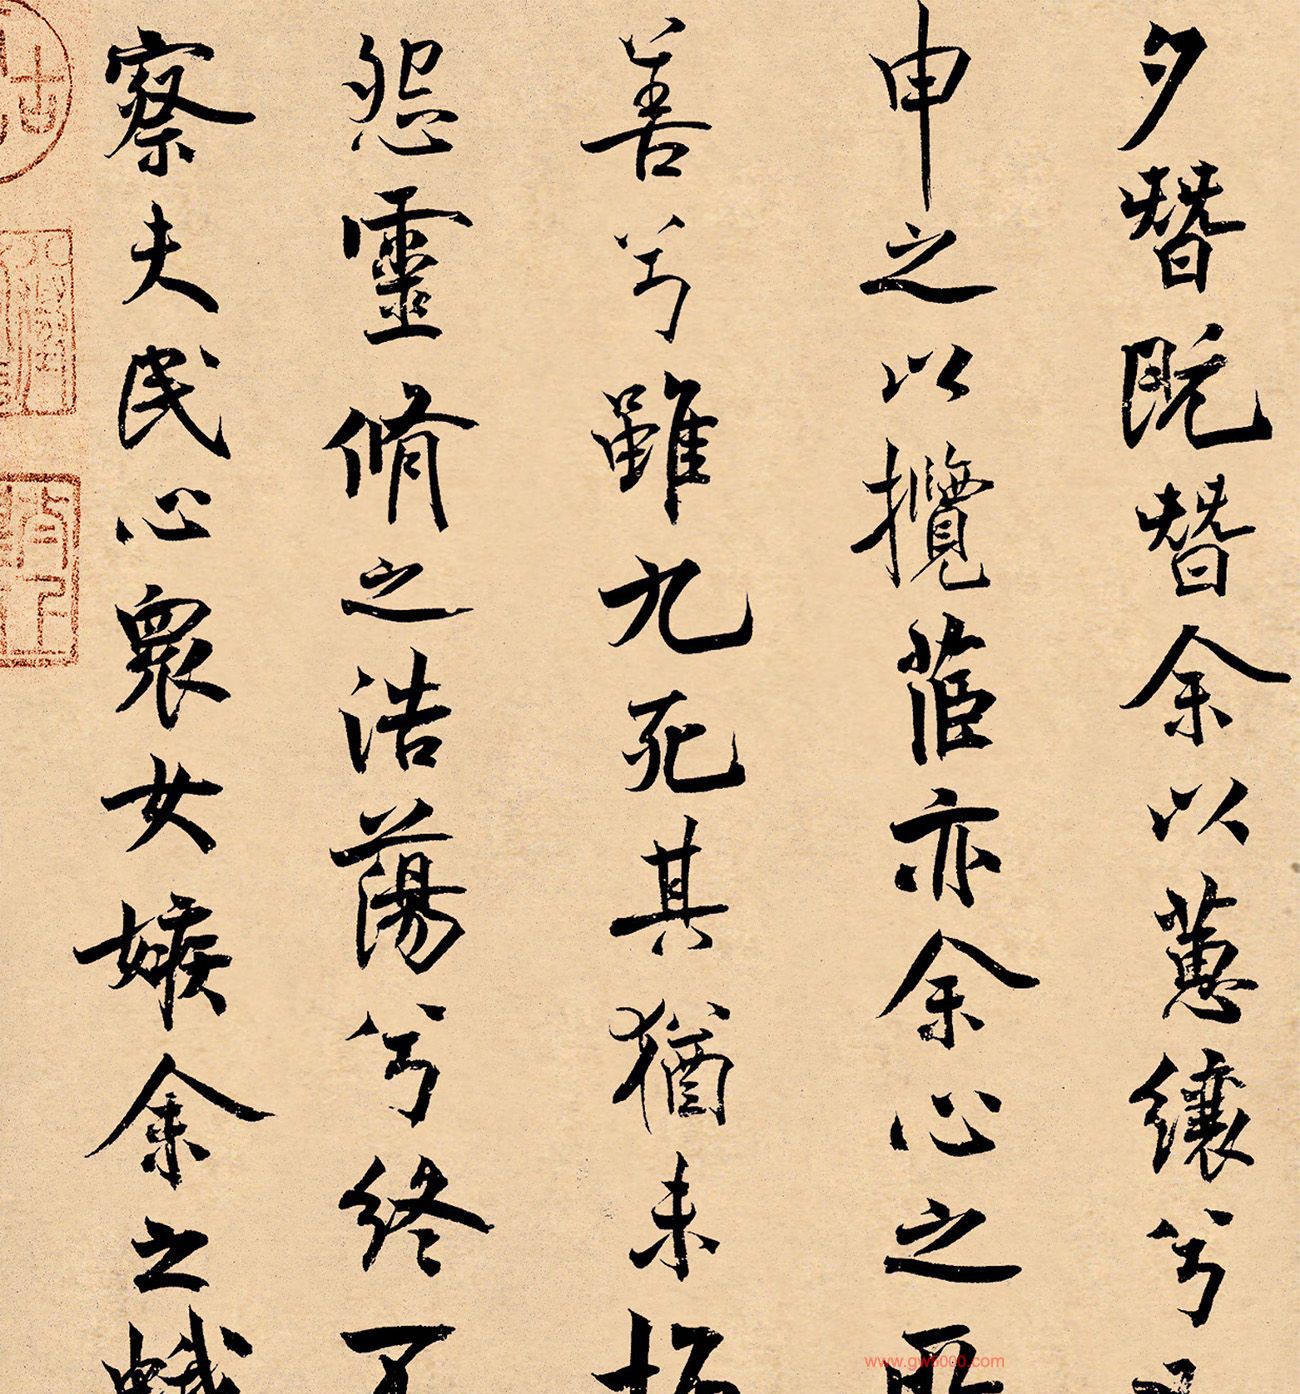 夕替既替余以蕙纕兮又
申之以攬茝亦余心之所
善兮雖九死其猶未
怨靈脩之浩蕩兮終不
察夫民心衆女嫉余之蛾
www.gw5000.com